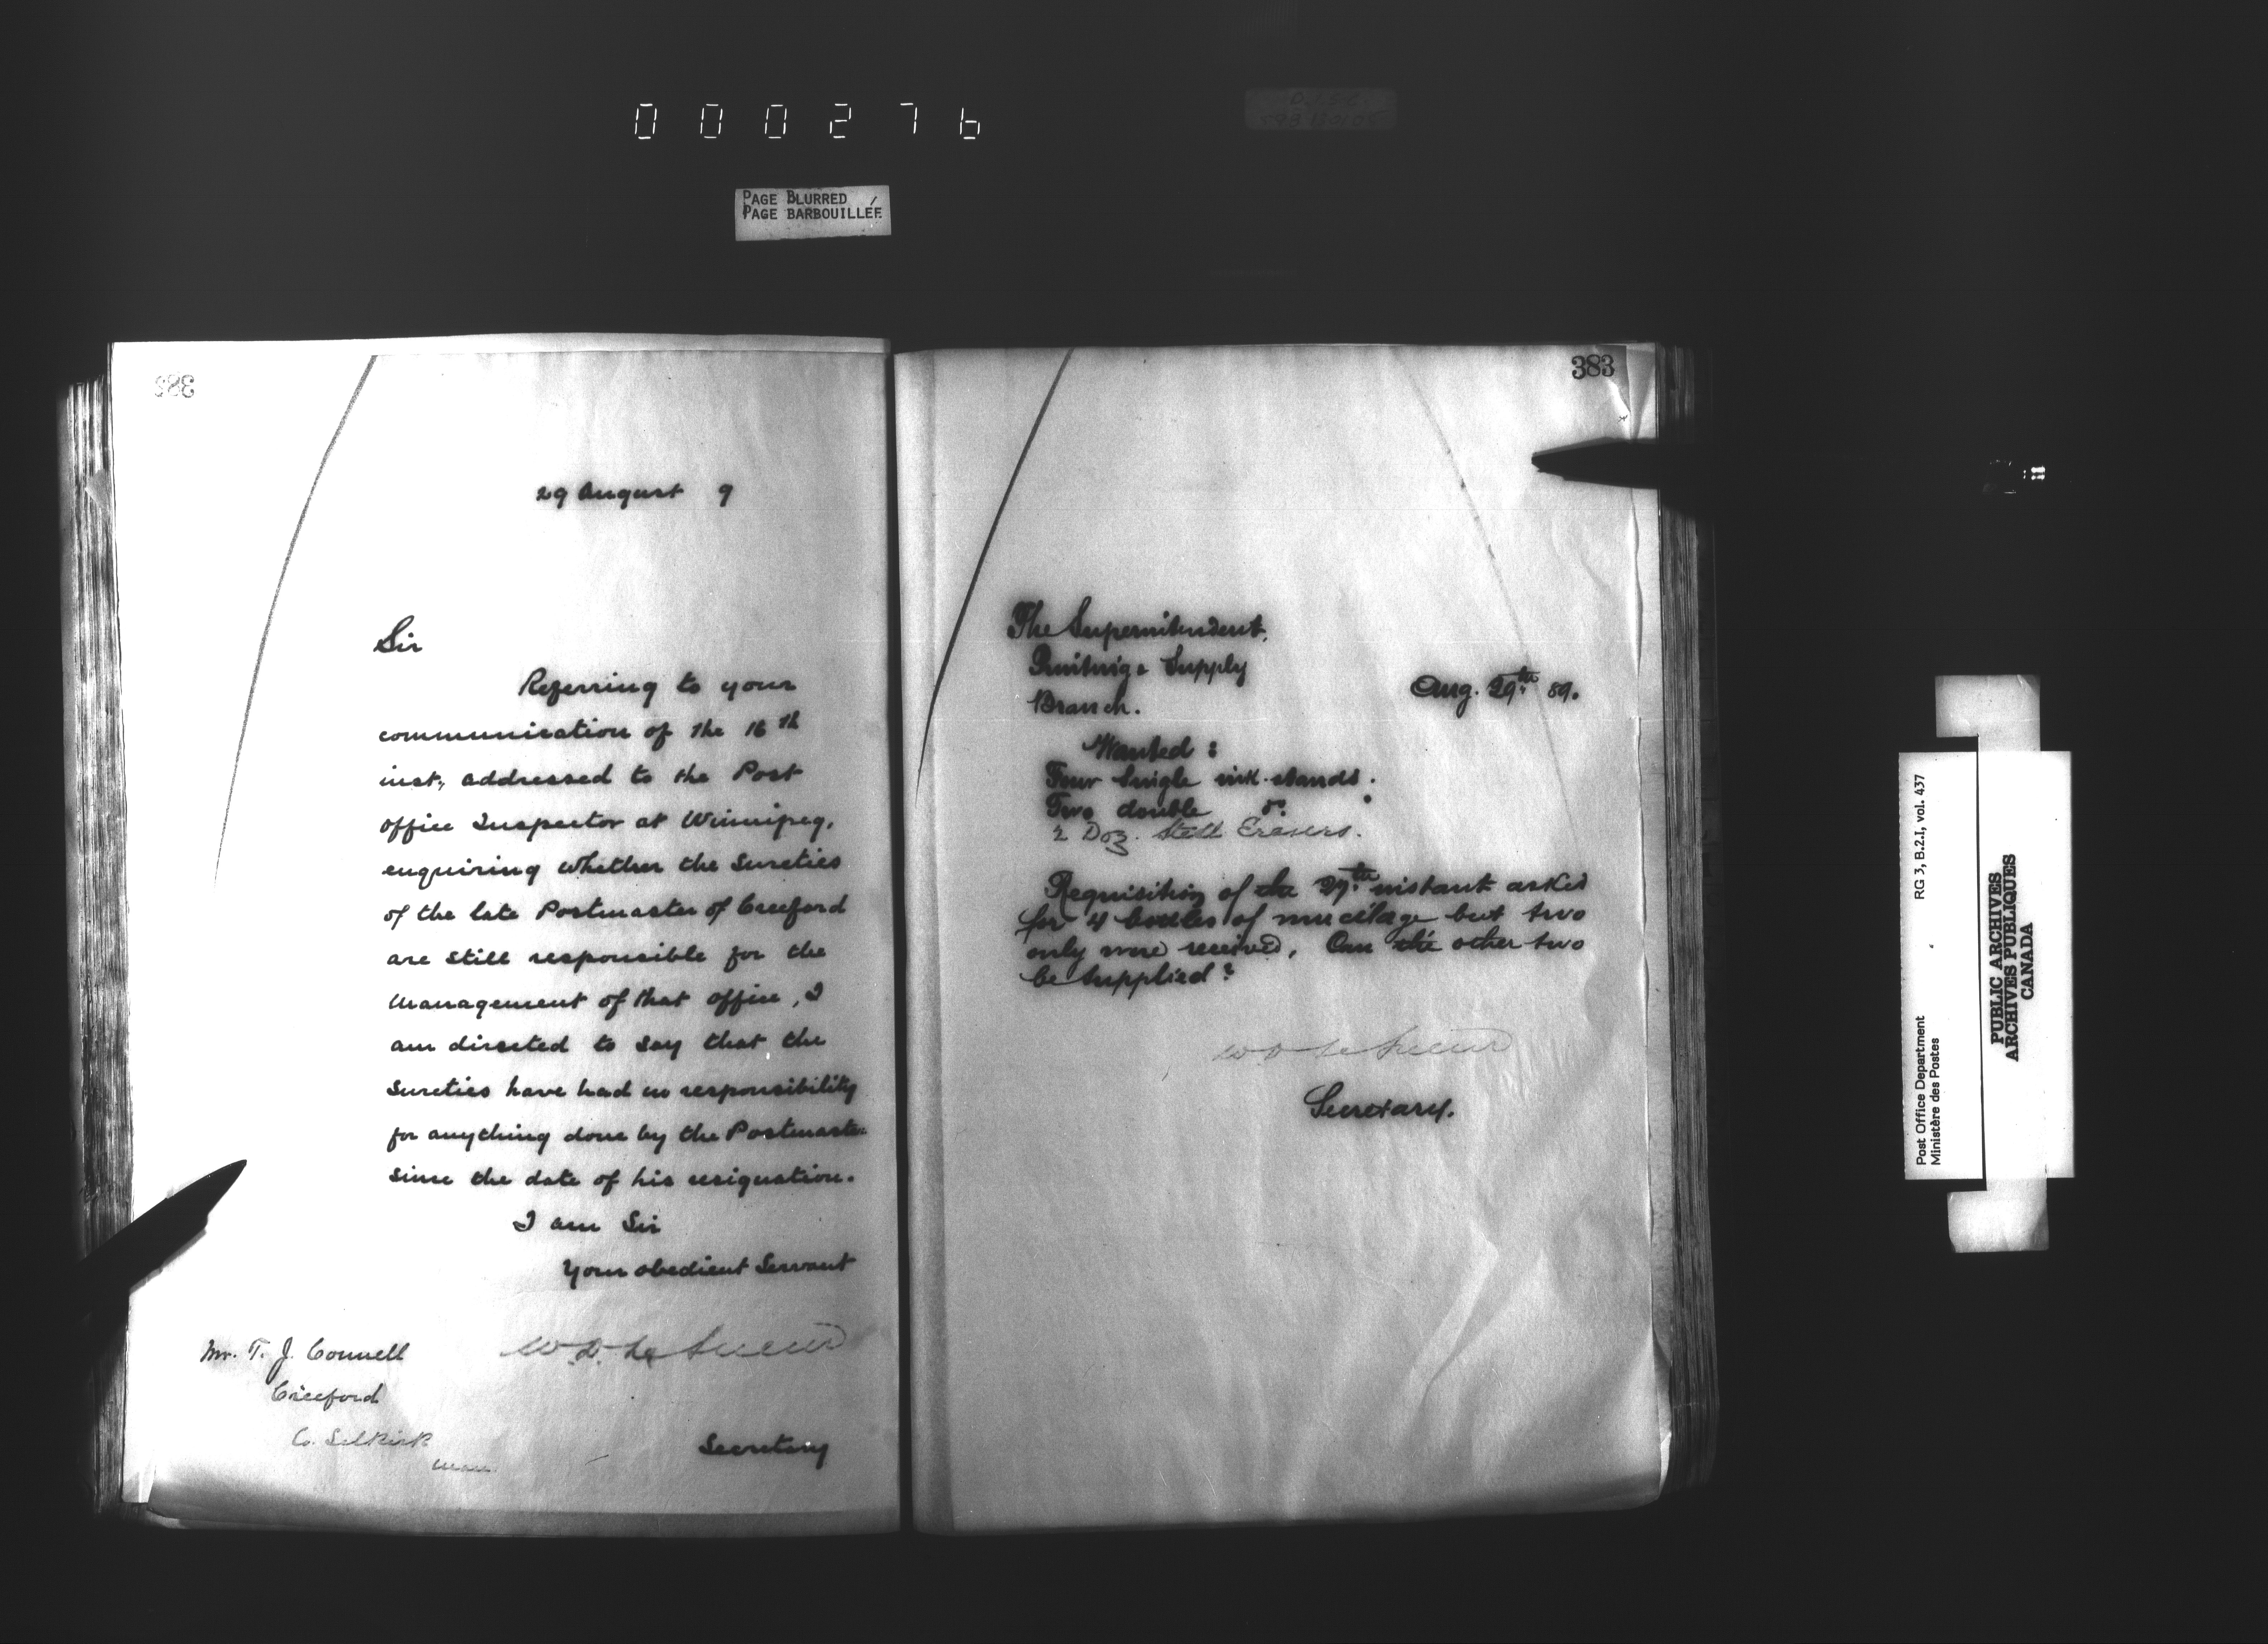 000276
PAGE BLURRED
PAGE BARBOUILLÉE
29 August 9
Sir
Referring to your
communication of the 16th
inst, addressed to the Post
office Inspector at Winnipeg,
enquiring whether the Sureties
of the late Postmaster of Creeford
are still responsible for the
management of that office, I
am directed to say that the
Sureties have had no responsibility
for anything done by the Postmaster
since the date of his resignation.
I am Sir
Your obedient Servant
W.D. LeSueur
Mr. T. J. Connell
Creeford
Co. Selkirk
Man
Secretary
383
The Superintendent,
Printing & Supply
Branch.
Aug. 29th 89.
Wanted:
Four Single ink-stands.
Two double do.
2 Doz. Steel Erasers.
Requisition of the 27th instant asked
for 4 bottles of mucilage but two
only were received. Can the other two
be supplied?
W D LeSueur
Secretary.
Post Office Department
Ministère des Postes
RG 3, B.2.I, vol. 437
PUBLIC ARCHIVES
ARCHIVES PUBLIQUES
CANADA